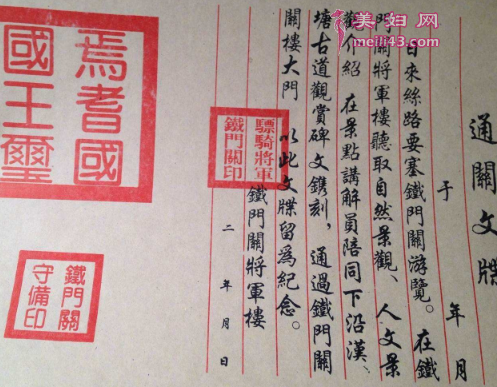 美妇网
meili43.com
通關文牒
于 年 月
日來絲路要塞鐵門關游覽。在鐵
門關將軍樓聽取自然景觀、人文景
觀介紹 在景點講解員陪同下沿漢、
塘古道觀賞碑文鐫刻,通過鐵門關
關樓大門 以此文牒留爲紀念。
鐵門關將軍樓
二 年 月 日
驃騎將軍
鐵門關印
焉耆國
國王璽
鐵門關
守備印